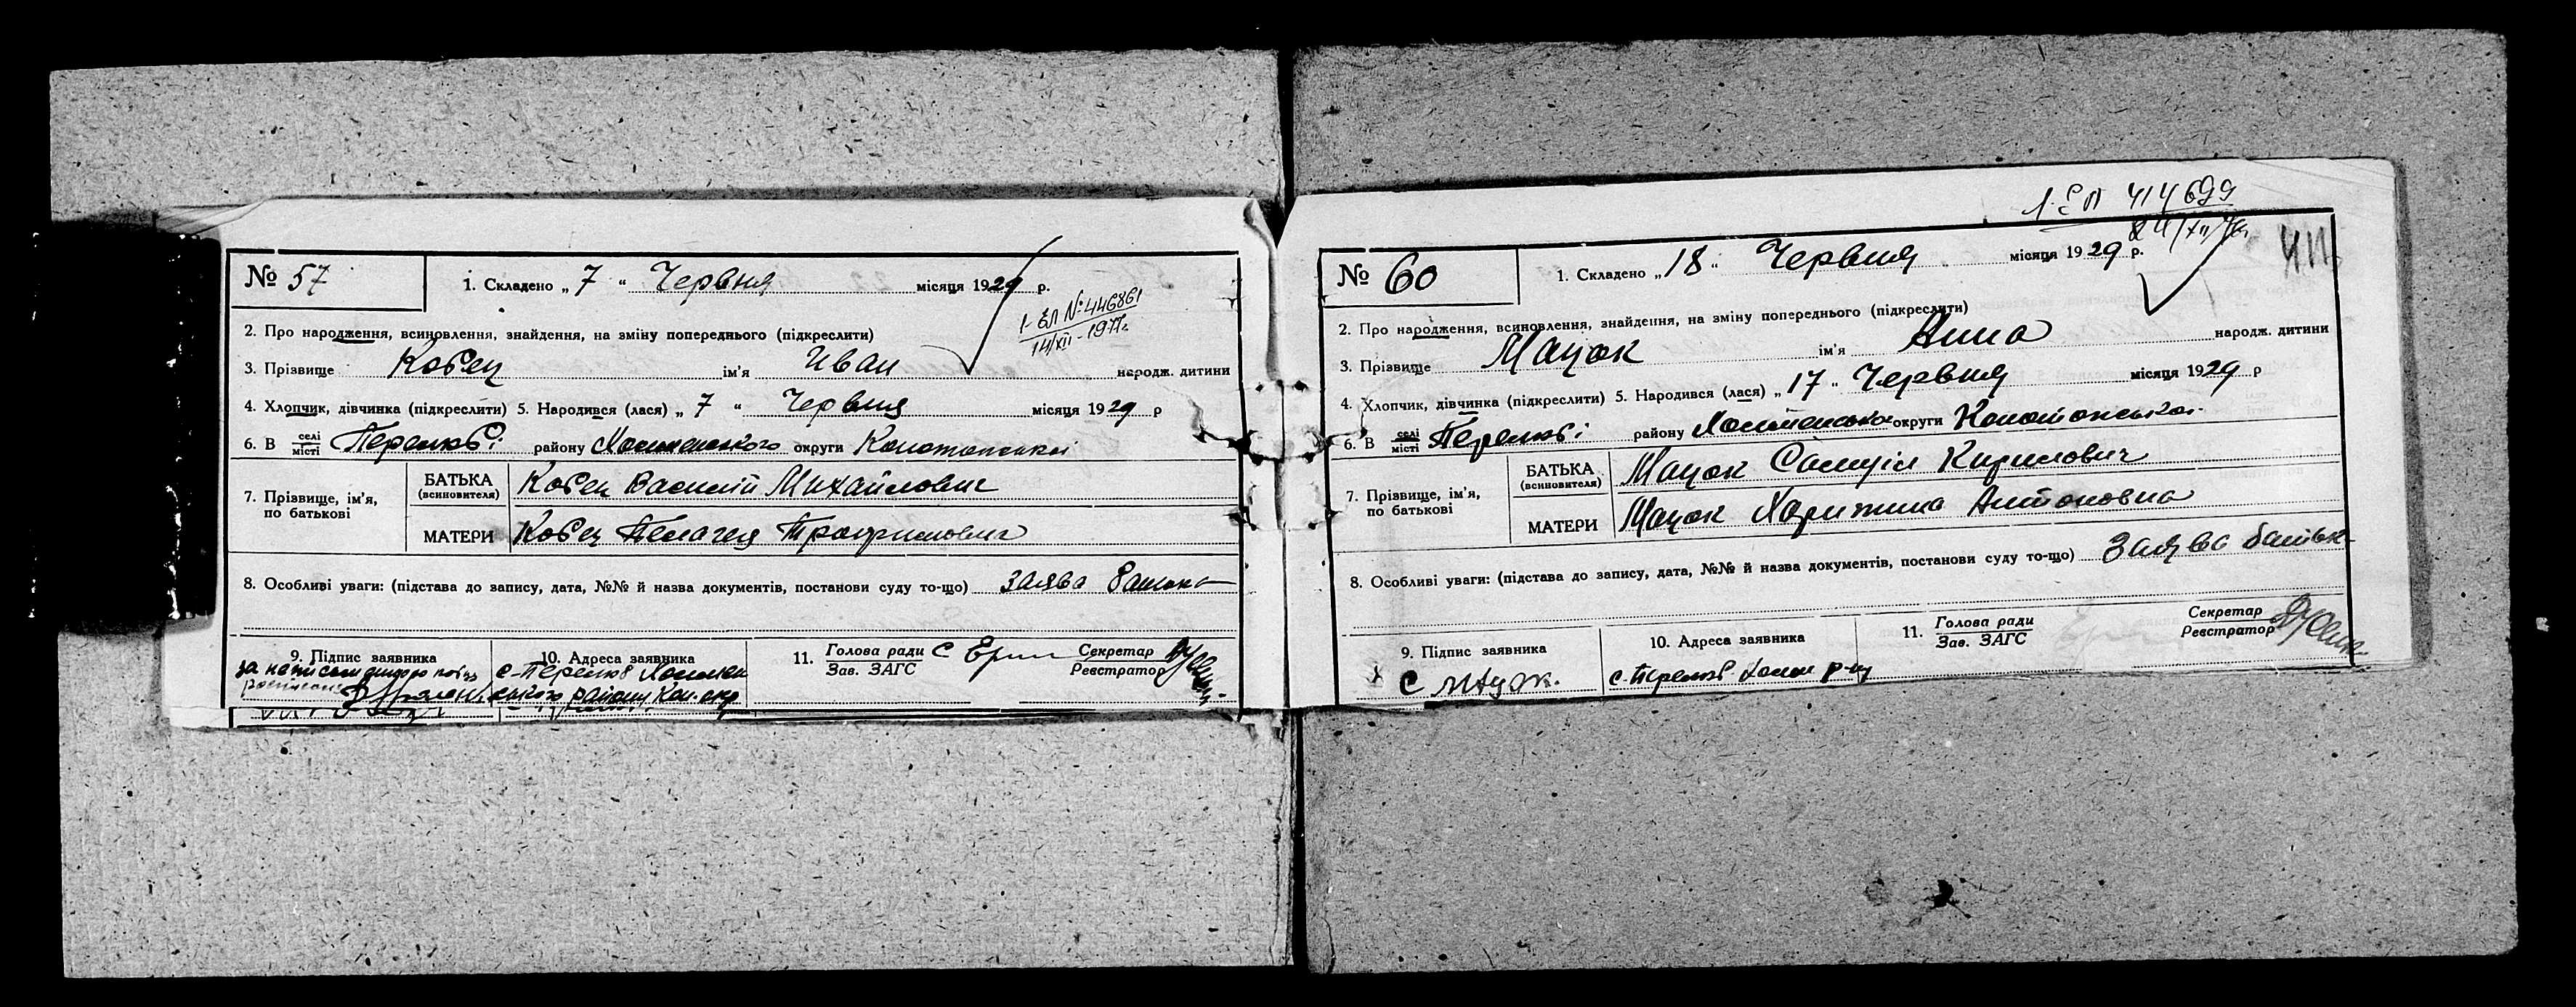 № 57
1. Складено „ 7 “ Червня місяця 1929 р.
1-ЕЛ № 446861
14/XII-1977г
2. Про народження, всиновлення, знайдення, на зміну попереднього (підкреслити)
3. Прізвище Кобец ім'я Иван народж. дитини
4. Хлопчик, дівчинка (підкреслити) 5. Народився (лася) „ 7 “ Червня місяця 1929 р
6. В селі місті Перелюбі району Холменського округи Конотопської
7. Прізвище, ім'я, по батькові
БАТЬКА (всиновителя) Кобец Василій Михайлович
МАТЕРИ Кобец Пелагея Трофимович
8. Особливі уваги: (підстава до запису, дата, №№ й назва документів, постанови суду то-що) заява батька
9. Підпис заявника
10. Адреса заявника
с-Перелюб Холмен
ського району Кон. окр
11. Голова ради Зав. ЗАГС С
Секретар Реєстратор
1-ЕЛ 414699
411
№ 60
1. Складено „ 18 “ Червня місяця 1929 р.
2. Про народження, всиновлення, знайдення, на зміну попереднього (підкреслити)
3. Прізвище Мацок ім'я Анна народж. дитини
4. Хлопчик, дівчинка (підкреслити) 5. Народився (лася) „ 17 “ Червня місяця 1929 р
6. В селі місті Перелюбі району Холменсько округи Конотопської
7. Прізвище, ім'я, по батькові
БАТЬКА (всиновителя) Мацок Самуіл Кирилович
МАТЕРИ Мацок Харитина Антоновна
8. Особливі уваги: (підстава до запису, дата, №№ й назва документів, постанови суду то-що) Заява батьк
9. Підпис заявника
С Мацок.
10. Адреса заявника
с-Перелюб Холм р-ну
11. Голова ради Зав. ЗАГС
Секретар Реєстратор